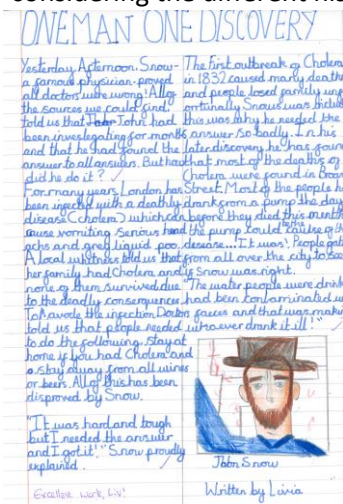 considering the different his
ONE MAN ONE DISCOVERY
Yesterday Afternoon. Snow-
a famous physician. proved
all doctors were wrong! All of
the sources we could find
told us that John had
been investegating for months
and that he had found the
answer to all answers. But how
did he do it?
For many years, London has
been infected with a deathly
disease (Cholera) which can
cause vomiting serious head
achs and greg liquid poo.
A local whitness told us that
her family had Cholera and
none of them survived due
to the deadly consequences
To avoide the infection Doctors
told us that people needed
to do the following, stay at
home if you had Cholera and
stay away from all wines
or beers. All of this has been
disproved by Snow.
"It was hard and tough
but I needed the answer
and I got it!" Snow proudly
explained.
Excellent work, Liv!
The first outbreak of Cholera
in 1832 caused many deaths
and people losed family
this was why he needed the
answer so badly. In his
later discovery he has found
that most of the deaths of
Cholera were found in
Street. Most of the people
drank from a pump the day
before they died this month
the pump could the cause of the
desease... It was! People
from all over the city to see
if Snow was right.
"The water people were
had been contaminated
faeces and that was making
who ever drank it ill!"
John Snow
Written by Livia